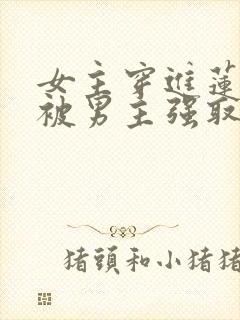 女主穿進蓮
被男主强取
猪頭和小猪猪